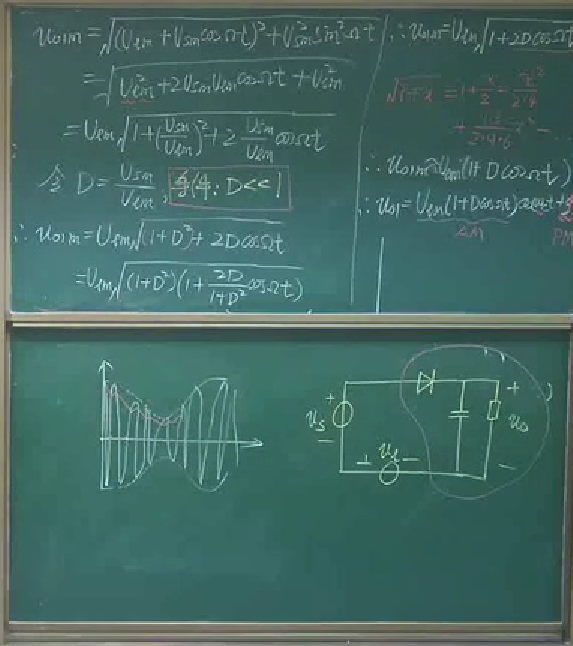 u₀₁m = √((Vlm + Vsm cosΩt)² + Vsm² sin²Ωt)
= √(Vlm² + 2VsmVlm cosΩt + Vsm²)
= Vlm √(1 + (Vsm/Vlm)² + 2 Vsm/Vlm cosΩt)
令 D = Vsm/Vlm, 条件: D<<1
∴ u₀₁m = Vlm √(1+D² + 2D cosΩt)
= Vlm √((1+D²)(1 + 2D/(1+D²) cosΩt))
∴ u₀₁m = Vlm √(1+2D cosΩt
√(1+x) = 1 + x/2 - x²/(2·4)
+ 1·3/(2·4·6) x³ - ...
∴ u₀₁m ≈ Vlm(1 + D cosΩt)
∴ u₀₁ = Vlm(1+D cosΩt)
PM
υs + −
+ υl −
+ υo −